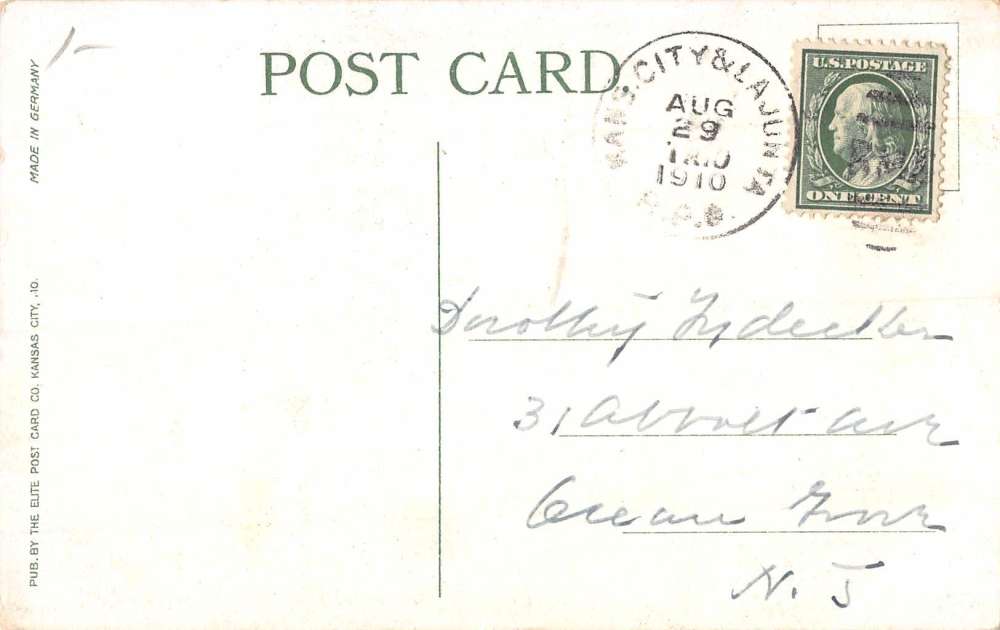 POST CARD
MADE IN GERMANY
KANS. CITY & LAJUNTA
AUG
29
1910
U.S. POSTAGE
ONE CENT
Dorothy Lydecker
31 Abbott Ave
Ocean Grove
N. J
PUB. BY THE ELITE POST CARD CO. KANSAS CITY, .IO.